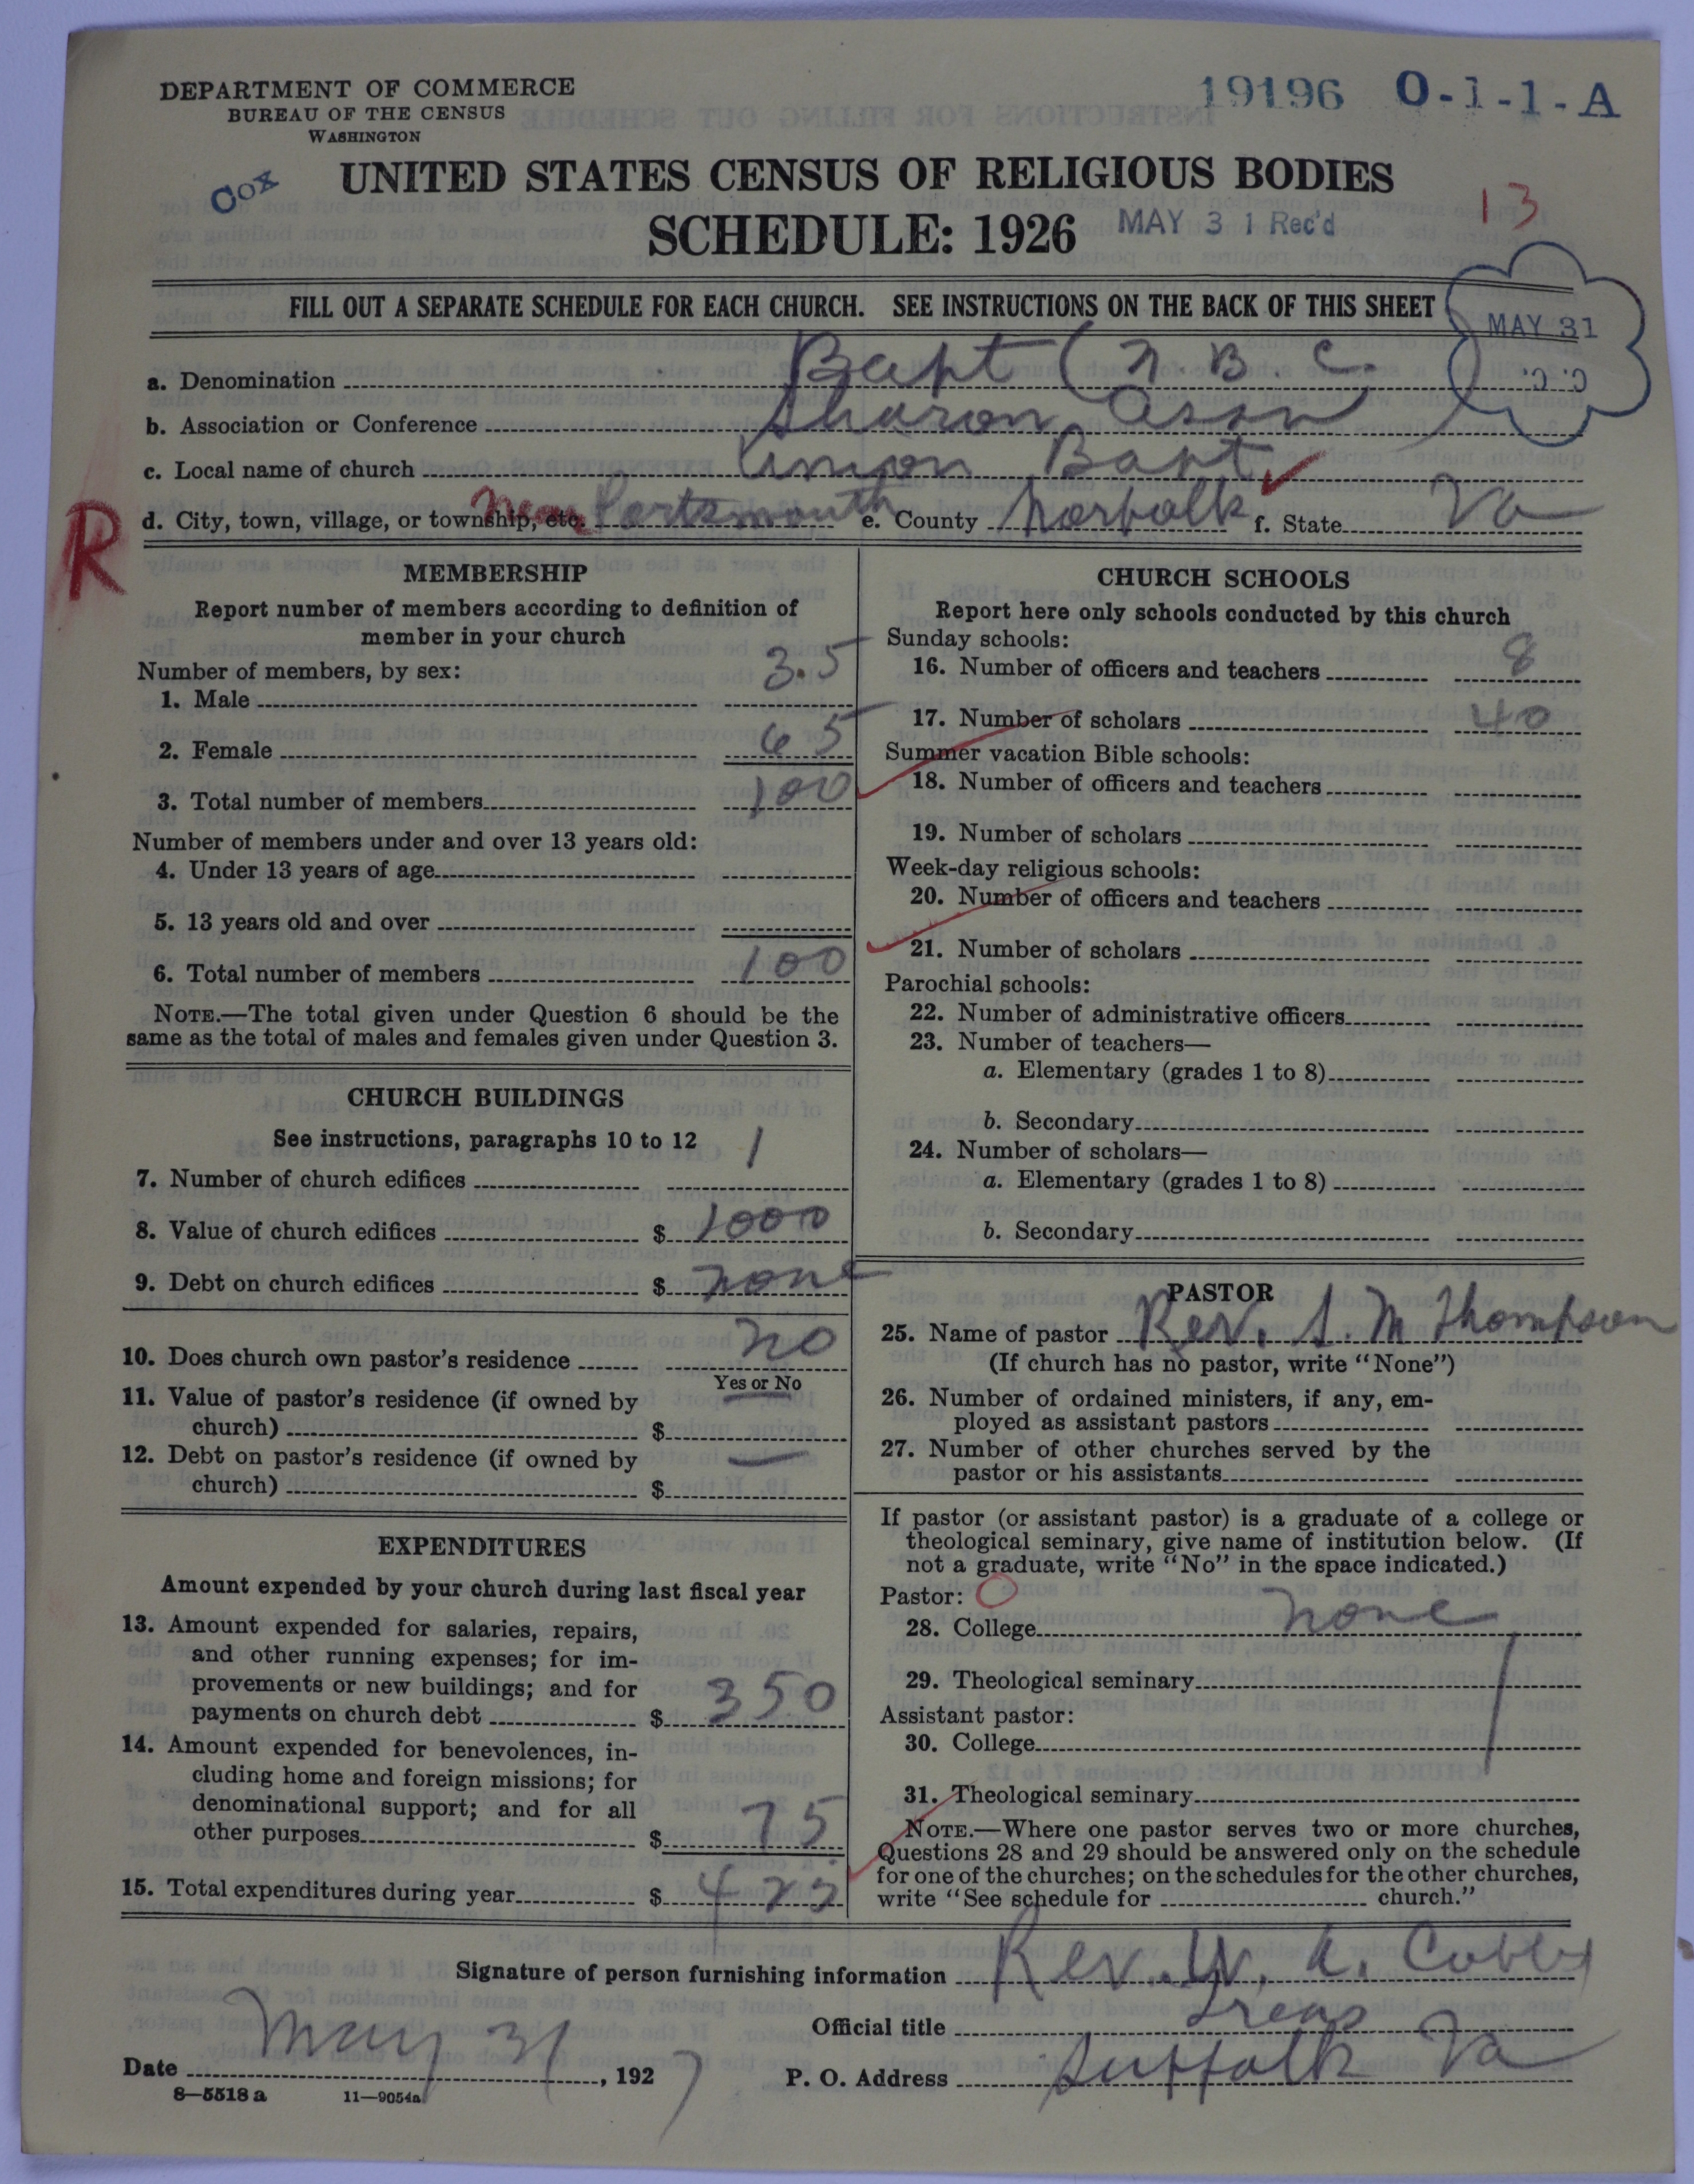 DEPARTMENT OF COMMERCE
BUREAU OF THE CENSUS
WASHINGTON
19196 O-1-1-A
Cox
UNITED STATES CENSUS OF RELIGIOUS BODIES
SCHEDULE: 1926
MAY 31 Rec'd
13
FILL OUT A SEPARATE SCHEDULE FOR EACH CHURCH. SEE INSTRUCTIONS ON THE BACK OF THIS SHEET
MAY 31
a. Denomination Bapt (N. B. C.)
b. Association or Conference Sharon Assn
c. Local name of church Union Bapt
d. City, town, village, or township, etc. near Portsmouth e. County Norfolk f. State Va
R
MEMBERSHIP
Report number of members according to definition of
member in your church
Number of members, by sex:
1. Male 35
2. Female 65
3. Total number of members 100
Number of members under and over 13 years old:
4. Under 13 years of age
5. 13 years old and over
6. Total number of members 100
NOTE.—The total given under Question 6 should be the
same as the total of males and females given under Question 3.
CHURCH BUILDINGS
See instructions, paragraphs 10 to 12
7. Number of church edifices 1
8. Value of church edifices $ 1000
9. Debt on church edifices $ none
10. Does church own pastor's residence no
Yes or No
11. Value of pastor's residence (if owned by
church) $
12. Debt on pastor's residence (if owned by
church) $
EXPENDITURES
Amount expended by your church during last fiscal year
13. Amount expended for salaries, repairs,
and other running expenses; for im-
provements or new buildings; and for
payments on church debt $ 350
14. Amount expended for benevolences, in-
cluding home and foreign missions; for
denominational support; and for all
other purposes $ 75
15. Total expenditures during year $ 425
CHURCH SCHOOLS
Report here only schools conducted by this church
Sunday schools:
16. Number of officers and teachers 8
17. Number of scholars 40
Summer vacation Bible schools:
18. Number of officers and teachers
19. Number of scholars
Week-day religious schools:
20. Number of officers and teachers
21. Number of scholars
Parochial schools:
22. Number of administrative officers
23. Number of teachers—
a. Elementary (grades 1 to 8)
b. Secondary
24. Number of scholars—
a. Elementary (grades 1 to 8)
b. Secondary
PASTOR
25. Name of pastor Rev. S. M Thompson
(If church has no pastor, write "None")
26. Number of ordained ministers, if any, em-
ployed as assistant pastors
27. Number of other churches served by the
pastor or his assistants
If pastor (or assistant pastor) is a graduate of a college or
theological seminary, give name of institution below. (If
not a graduate, write "No" in the space indicated.)
Pastor: O
28. College none
29. Theological seminary
Assistant pastor:
30. College
31. Theological seminary
NOTE.—Where one pastor serves two or more churches,
Questions 28 and 29 should be answered only on the schedule
for one of the churches; on the schedules for the other churches,
write "See schedule for church."
Signature of person furnishing information Rev. W. A. Cobbs
Official title Treas
Date May 31, 1927 P. O. Address Suffolk Va
8—5518 a 11—9054a